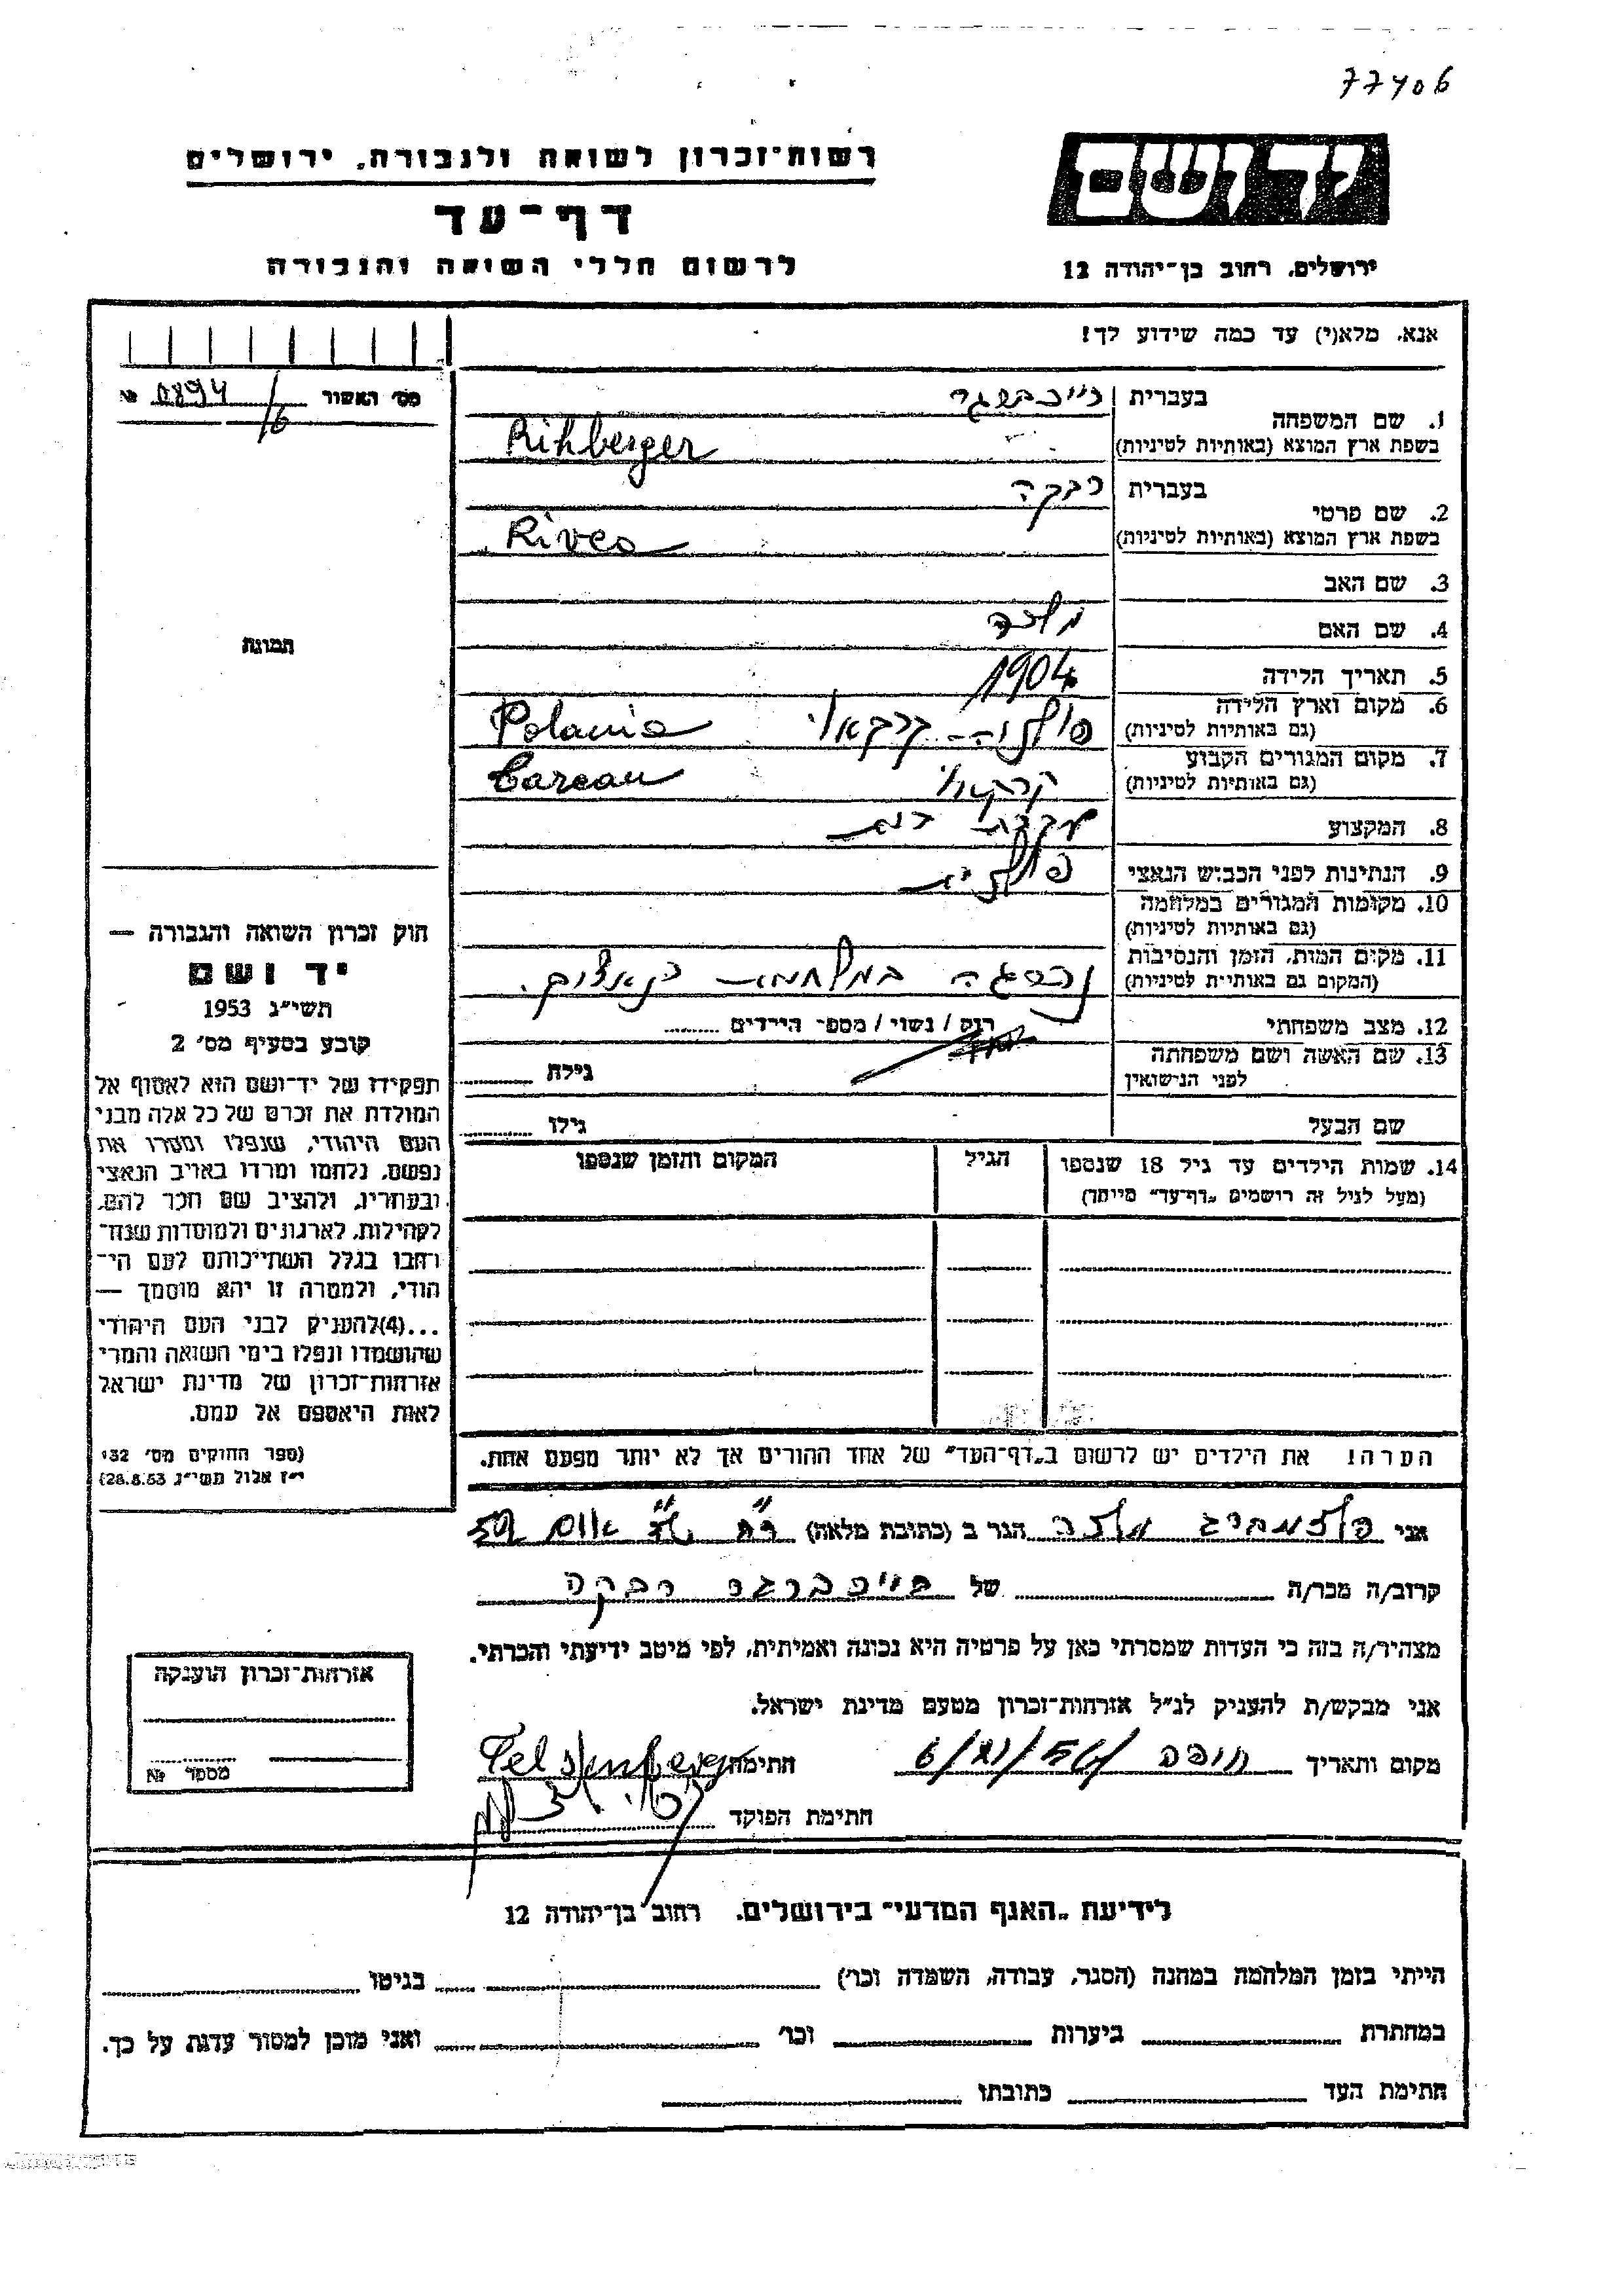 77406
יד ושם
רשות־זכרון לשואה ולגבורה, ירושלים
דף־עד
לרשום חללי השואה והגבורה
ירושלים, רחוב בן־יהודה 12
אנא, מלא(י) עד כמה שידוע לך!
מס׳ האשור 0894/6 №
1. שם המשפחה
בעברית
בשפת ארץ המוצא (באותיות לטיניות) Rihberger
2. שם פרטי
בעברית רבקה
בשפת ארץ המוצא (באותיות לטיניות)
3. שם האב
4. שם האם
5. תאריך הלידה 1904
6. מקום וארץ הלידה
(גם באותיות לטיניות) פולניה – קרקאוי Polania
7. מקום המגורים הקבוע
(גם באותיות לטיניות) קרקאוי
8. המקצוע עקרת בית
9. הנתינות לפני הכבוש הנאצי פולנית
10. מקומות המגורים במלחמה
(גם באותיות לטיניות)
11. מקום המות, הזמן והנסיבות
(המקום גם באותיות לטיניות) נהרגה במלחמת הנאצים.
12. מצב משפחתי רוק / נשוי / מספר הילדים
13. שם האשה ושם משפחתה
לפני הנישואין
גילה
שם הבעל
גילו
14. שמות הילדים עד גיל 18 שנספו
(מעל לגיל זה רושמים „דף־עד״ מיוחד)
הגיל
המקום והזמן שנספו
הערה! את הילדים יש לרשום ב„דף־העד״ של אחד ההורים אך לא יותר מפעם אחת.
תמונה
חוק זכרון השואה והגבורה —
יד ושם
תשי״ג 1953
קובע בסעיף מס׳ 2
תפקידו של יד־ושם הוא לאסוף אל
המולדת את זכרם של כל אלה מבני
העם היהודי, שנפלו ומסרו את
נפשם, נלחמו ומרדו באויב הנאצי
ובעוזריו, ולהציב שם וזכר להם,
לקהילות, לארגונים ולמוסדות שנח־
רבו בגלל השתייכותם לעם הי־
הודי, ולמטרה זו יהא מוסמך —
...(4)להעניק לבני העם היהודי
שהושמדו ונפלו בימי השואה והמרי
אזרחות־זכרון של מדינת ישראל
לאות היאספם אל עמם.
(ספר החוקים מס׳ 132
י״ז אלול תשי״ג 28.8.53)
אני הגר ב (כתובת מלאה)
קרוב/ה מכר/ה של רבקה
מצהיר/ה בזה כי העדות שמסרתי כאן על פרטיה היא נכונה ואמיתית, לפי מיטב ידיעתי והכרתי.
אני מבקש/ת להעניק לנ״ל אזרחות־זכרון מטעם מדינת ישראל.
מקום ותאריך חיפה 6/XI/56 חתימה
חתימת הפוקד
אזרחות־זכרון הוענקה
מספר №
לידיעת „האגף המדעי״ בירושלים, רחוב בן־יהודה 12
הייתי בזמן המלחמה במחנה (הסגר, עבודה, השמדה וכו׳) בגיטו
במחתרת ביערות וכו׳ ואני מוכן למסור עדות על כך.
חתימת העד כתובתו